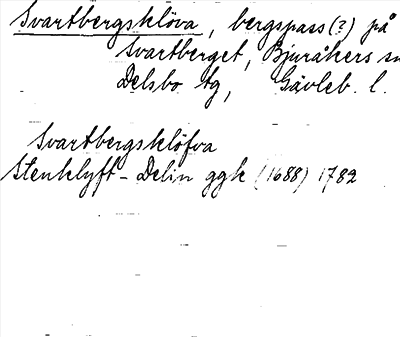 Svartbergsklöva, bergspass (?) på
Svartberget, Bjuråkers sn
Delsbo tg, Gävleb. l.
Svartbergsklöfva
Stenklyft - Delin ggk (1688) 1782